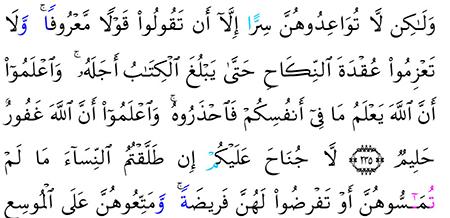 وَلَـٰكِن لَّا تُوَاعِدُوهُنَّ سِرًّا إِلَّآ أَن تَقُولُوا۟ قَوْلًا مَّعْرُوفًا ۚ وَلَا
تَعْزِمُوا۟ عُقْدَةَ ٱلنِّكَاحِ حَتَّىٰ يَبْلُغَ ٱلْكِتَـٰبُ أَجَلَهُۥ ۚ وَٱعْلَمُوٓا۟
أَنَّ ٱللَّهَ يَعْلَمُ مَا فِىٓ أَنفُسِكُمْ فَٱحْذَرُوهُ ۚ وَٱعْلَمُوٓا۟ أَنَّ ٱللَّهَ غَفُورٌ
حَلِيمٌ ﴿٢٣٥﴾ لَّا جُنَاحَ عَلَيْكُمْ إِن طَلَّقْتُمُ ٱلنِّسَآءَ مَا لَمْ
تُمَـٰٓسُّوهُنَّ أَوْ تَفْرِضُوا۟ لَهُنَّ فَرِيضَةً ۚ وَمَتِّعُوهُنَّ عَلَى ٱلْمُوسِعِ